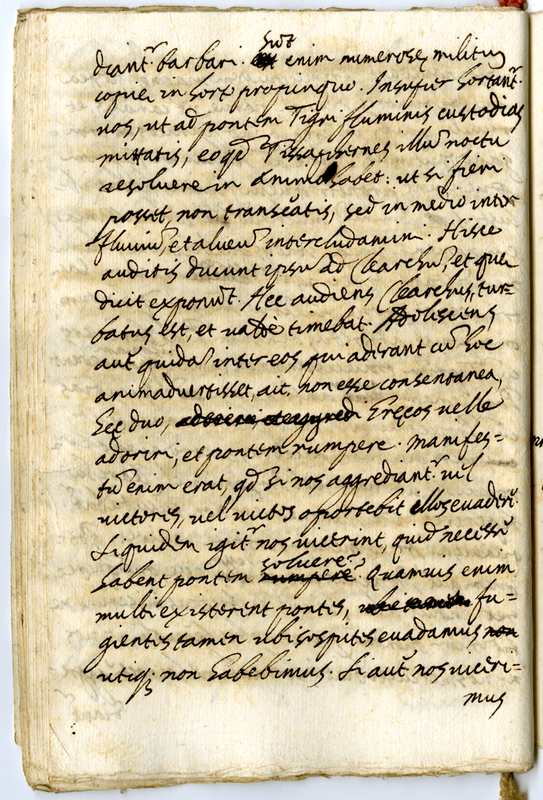 diant͂ barbari. sūt enim numerosę militū
copię in hortu propinquo. Insuper hortant͂
nos, ut ad pontem Tigri fluminis custodias
mittatis, eo qđ Tissaphernes illū noctu
resoluere in animo habet: ut si fieri
posset, non transeātis, sed in medio inter
fluuiū, et alueū intercludamini. Hisce
auditis ducunt ipsū ad Clearchū, et quę
dicit exponūt. Hęc audiens Clearchus, tur=
batus est, et ualde timebat. Adolescens
aūt quidā inter eos qui aderant cū hoc
animaduertisset, ait, non esse consentanea,
hęc duo, Gręcos uelle
adoriri, et pontem rumpere. Manifes=
tū enim erat, qđ si nos aggrediant͂ uel
uicteris, uel uictos oportebit illos euadere.
Siquidem igit͂ nos uicerint, quid necessū
habent pontem soluere? rumpere? Quamuis enim
multi existerent pontes, fu=
gientes tamen ubi sospites euadamus non
utiq; non habebimus. Si aūt nos uiceri=
mus